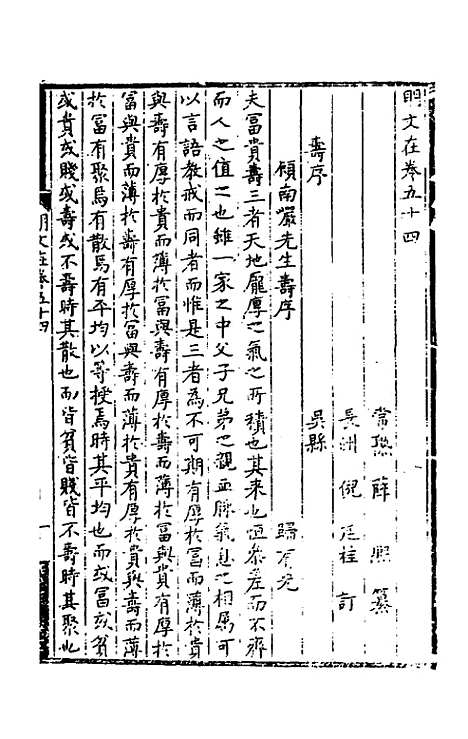 明文在卷五十四
常熟薛熙纂
長洲倪
訂
吳縣
壽序
顧南巖先生壽序
歸有光
夫富貴壽三者天地龐厚之氣之所積也其来也恒參差而不齊
而人之值之也雖一家之中父子兄弟之親血脉氣息之相属可
以言語教戒而同者而惟是三者為不可期有厚於富而薄於貴
與壽有厚於貴而薄於富與壽有厚於壽而薄於富與貴有厚於
富與貴而薄於壽有厚於富與壽而薄於貴有厚於貴與壽而薄
於富有聚焉有散焉有平均以等授焉時其平均也而或富或貧
或貴或賤或壽或不壽時其散也而皆貧皆賤皆不壽時其聚也
明文在卷五十四
一